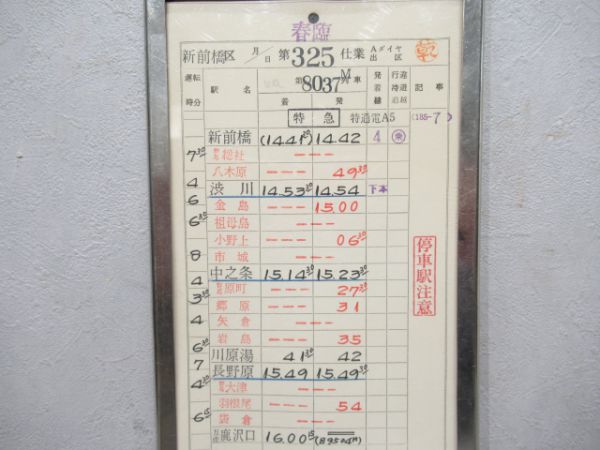 春臨
新前橋区 月/日 第325仕業 Aダイヤ出区 乾
運転時分 駅名 第8037M列車 着 発 発着線 行違待避追越 記事
特急 特通電A5 (185-7)
新前橋 (14.41 14.42 4
7 30 総社 ---
八木原 --- 49
4 渋川 14.53 14.54 下本
6 金島 --- 15.00
6 祖母島 ---
小野上 --- 06
8 市城 ---
4 中之条 15.14 30 15.23 30
3 30 原町 --- 27 30
郷原 --- 31
4 矢倉 ---
岩島 --- 35
6 川原湯 41 42
7 長野原 15.49 15.49 30
4 大津 ---
羽根尾 --- 54
6 袋倉 ---
鹿沢口 16.00 (8950M)
停車駅注意